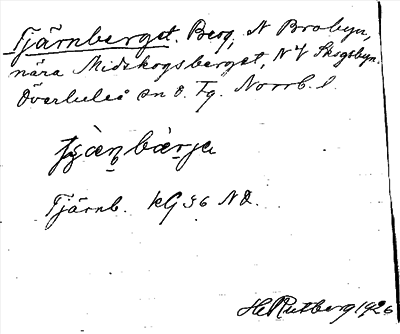 Tjärnberget. Berg, N Brobyn,
nära Midskogsberget, NV Skogsbyn.
Överluleå sn o. Tg. Norrb. l.
Tjärnb. KG 36 NO.
H Rutberg 1926